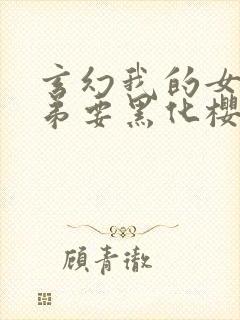 玄幻我的女
弟要黑化樱
顾青澈